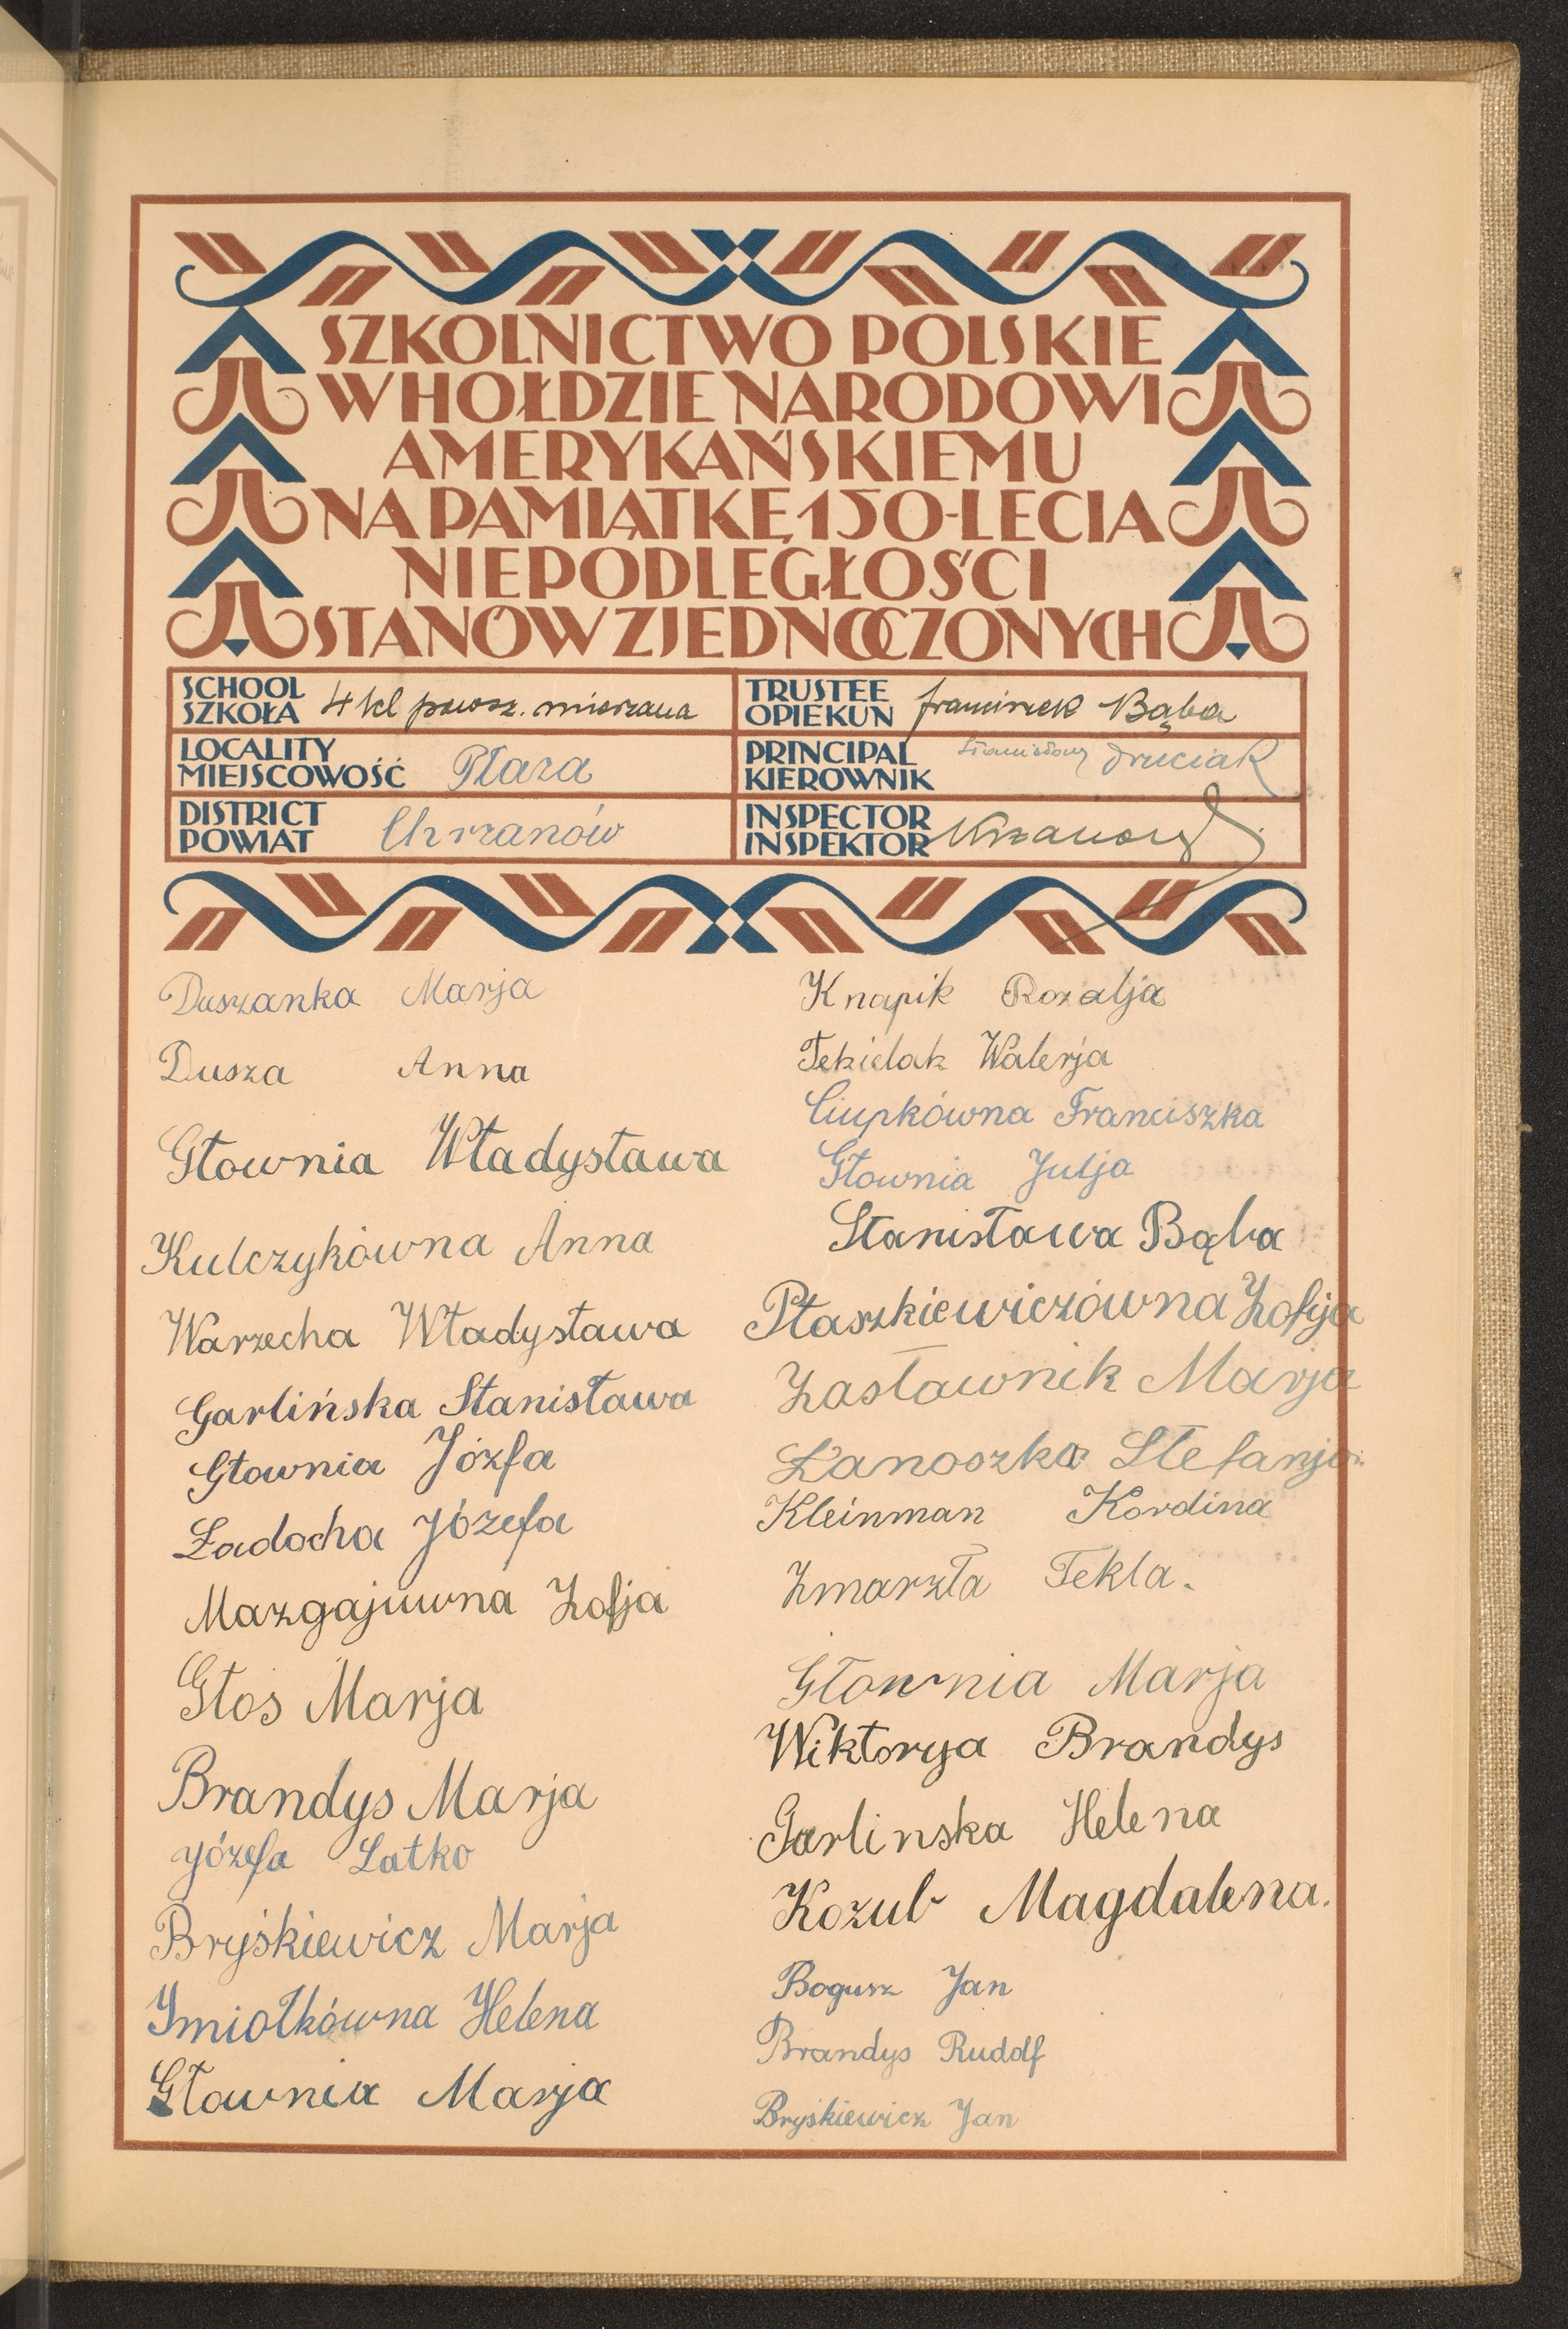 SZKOLNICTWO POLSKIE
W HOŁDZIE NARODOWI
AMERYKAŃSKIEMU
NA PAMIĄTKĘ 150-LECIA
NIEPODLEGŁOŚCI
STANÓW ZJEDNOCZONYCH
SCHOOL
SZKOŁA 4 kl powsz. mieszana
TRUSTEE
OPIEKUN Franciszek Bąba
LOCALITY
MIEJSCOWOŚĆ Płaza
PRINCIPAL
KIEROWNIK Stanisław Druciak
DISTRICT
POWIAT Chrzanów
INSPECTOR
INSPEKTOR
Duszanka Marja
Dusza Anna
Głownia Władysława
Kulczykówna Anna
Warzecha Władysława
Garlińska Stanisława
Głownia Józfa
Ładocha Józefa
Mazgajuwna Zofja
Głos Marja
Brandys Marja
Józefa Łatko
Bryśkiewicz Marja
Imiołkówna Helena
Głownia Marja
Knapik Rozalja
Tekielak Walerja
Ciupkówna Franciszka
Głownia Julja
Stanisława Bąba
Ptaszkiewiczówna Zofija
Zasławnik Marja
Łanoszka Stefanja
Kleinman Kordina
Zmarzła Tekla.
Głownia Marja
Wiktorya Brandys
Garlinska Helena
Kozub Magdalena.
Bogusz Jan
Brandys Rudolf
Bryśkiewicz Jan